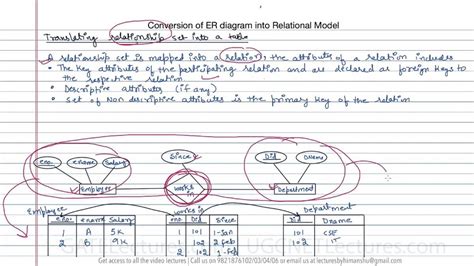 Conversion of ER diagram into Relational Model
Translating relationship set into a table
A relationship set is mapped into a relation, the attributes of a relation includes
• The key attributes of the participating relation and are declared as foreign keys to
the respective relation
• Descriptive attributes (if any)
• Set of Non descriptive attributes is the primary key of the relation
eno. ename Salary Since Did Dname
Employee works in Department
Employee works in Department
eno. ename Salary eno. Did Since Did Dname
1 A 5K 1 101 1-Jan 101 CSE
2 B 9K 2 102 2 Feb 102 IT
Get access to all the video lectures | Call us on 9821876102/03/04/06 or email us at lecturesbyhimanshu@gmail.com